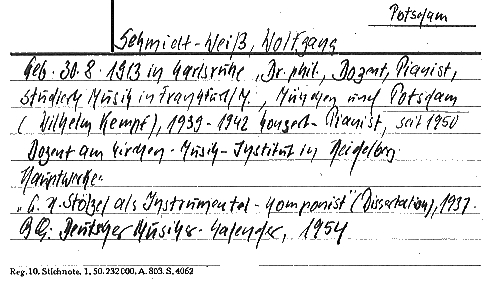 Potsdam
Schmidt-Weiß, Wolfgang
Geb. 30.8.1913 in Karlsruhe, Dr. phil., Dozent, Pianist,
studierte Musik in Frankfurt/M., München und Potsdam
(Wilhelm Kempf), 1939-1942 Konzert-Pianist, seit 1950
Dozent am Kirchen-Musik-Institut in Heidelberg
Hauptwerke:
"G. H. Stölzel als Instrumental-Komponist" (Dissertation), 1937.
BQ: Deutscher Musiker-Kalender, 1954
Reg. 10. Stichnote. 1. 50. 232000. A. 803. S. 4062